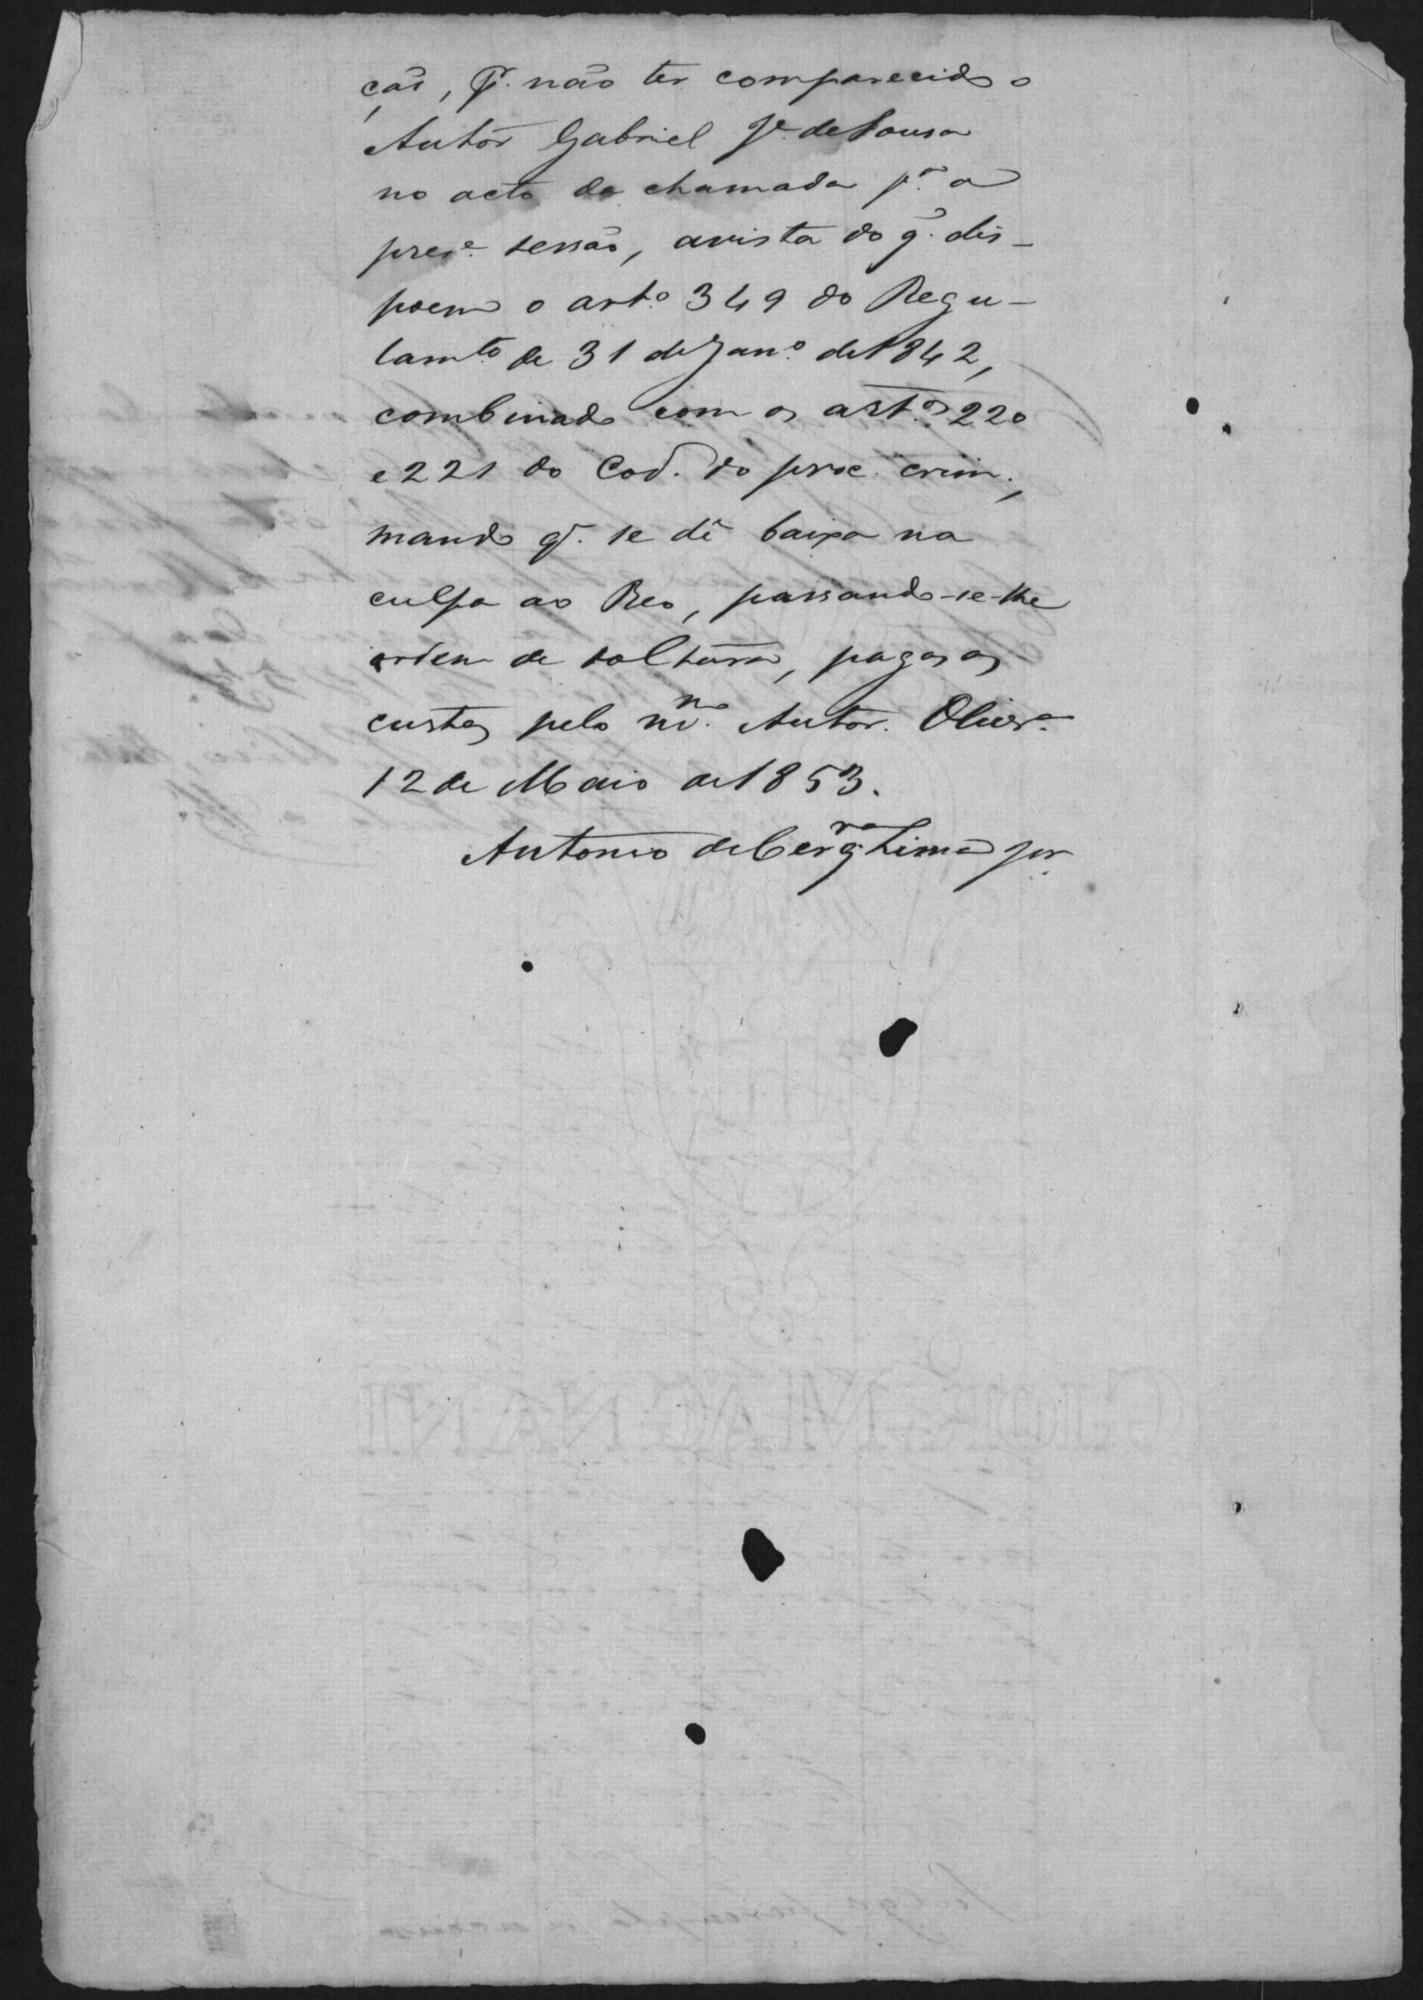 ção, P. não ter comparecido o
Autor Gabriel Jº. de Sousa
no acto da chamada pª. a
presᵉ. sessão, avista do q̃. dis-
poem o artº. 349 do Regu-
lamᵗᵒ de 31 de Janº. de 1842,
combinado com os artᵒˢ. 220
e 221 do Cod. do proc. crim.,
mando q̃. se dê baixa na
culpa ao Reo, passando-se-lhe
ordem de soltura, pagas as
custas pelo mᵐᵒ. Autor. Olivrª.
12 de Maio de 1853.
Antonio de Cerqʳᵃ. Lima Jor.
GIOR. MAGNANI